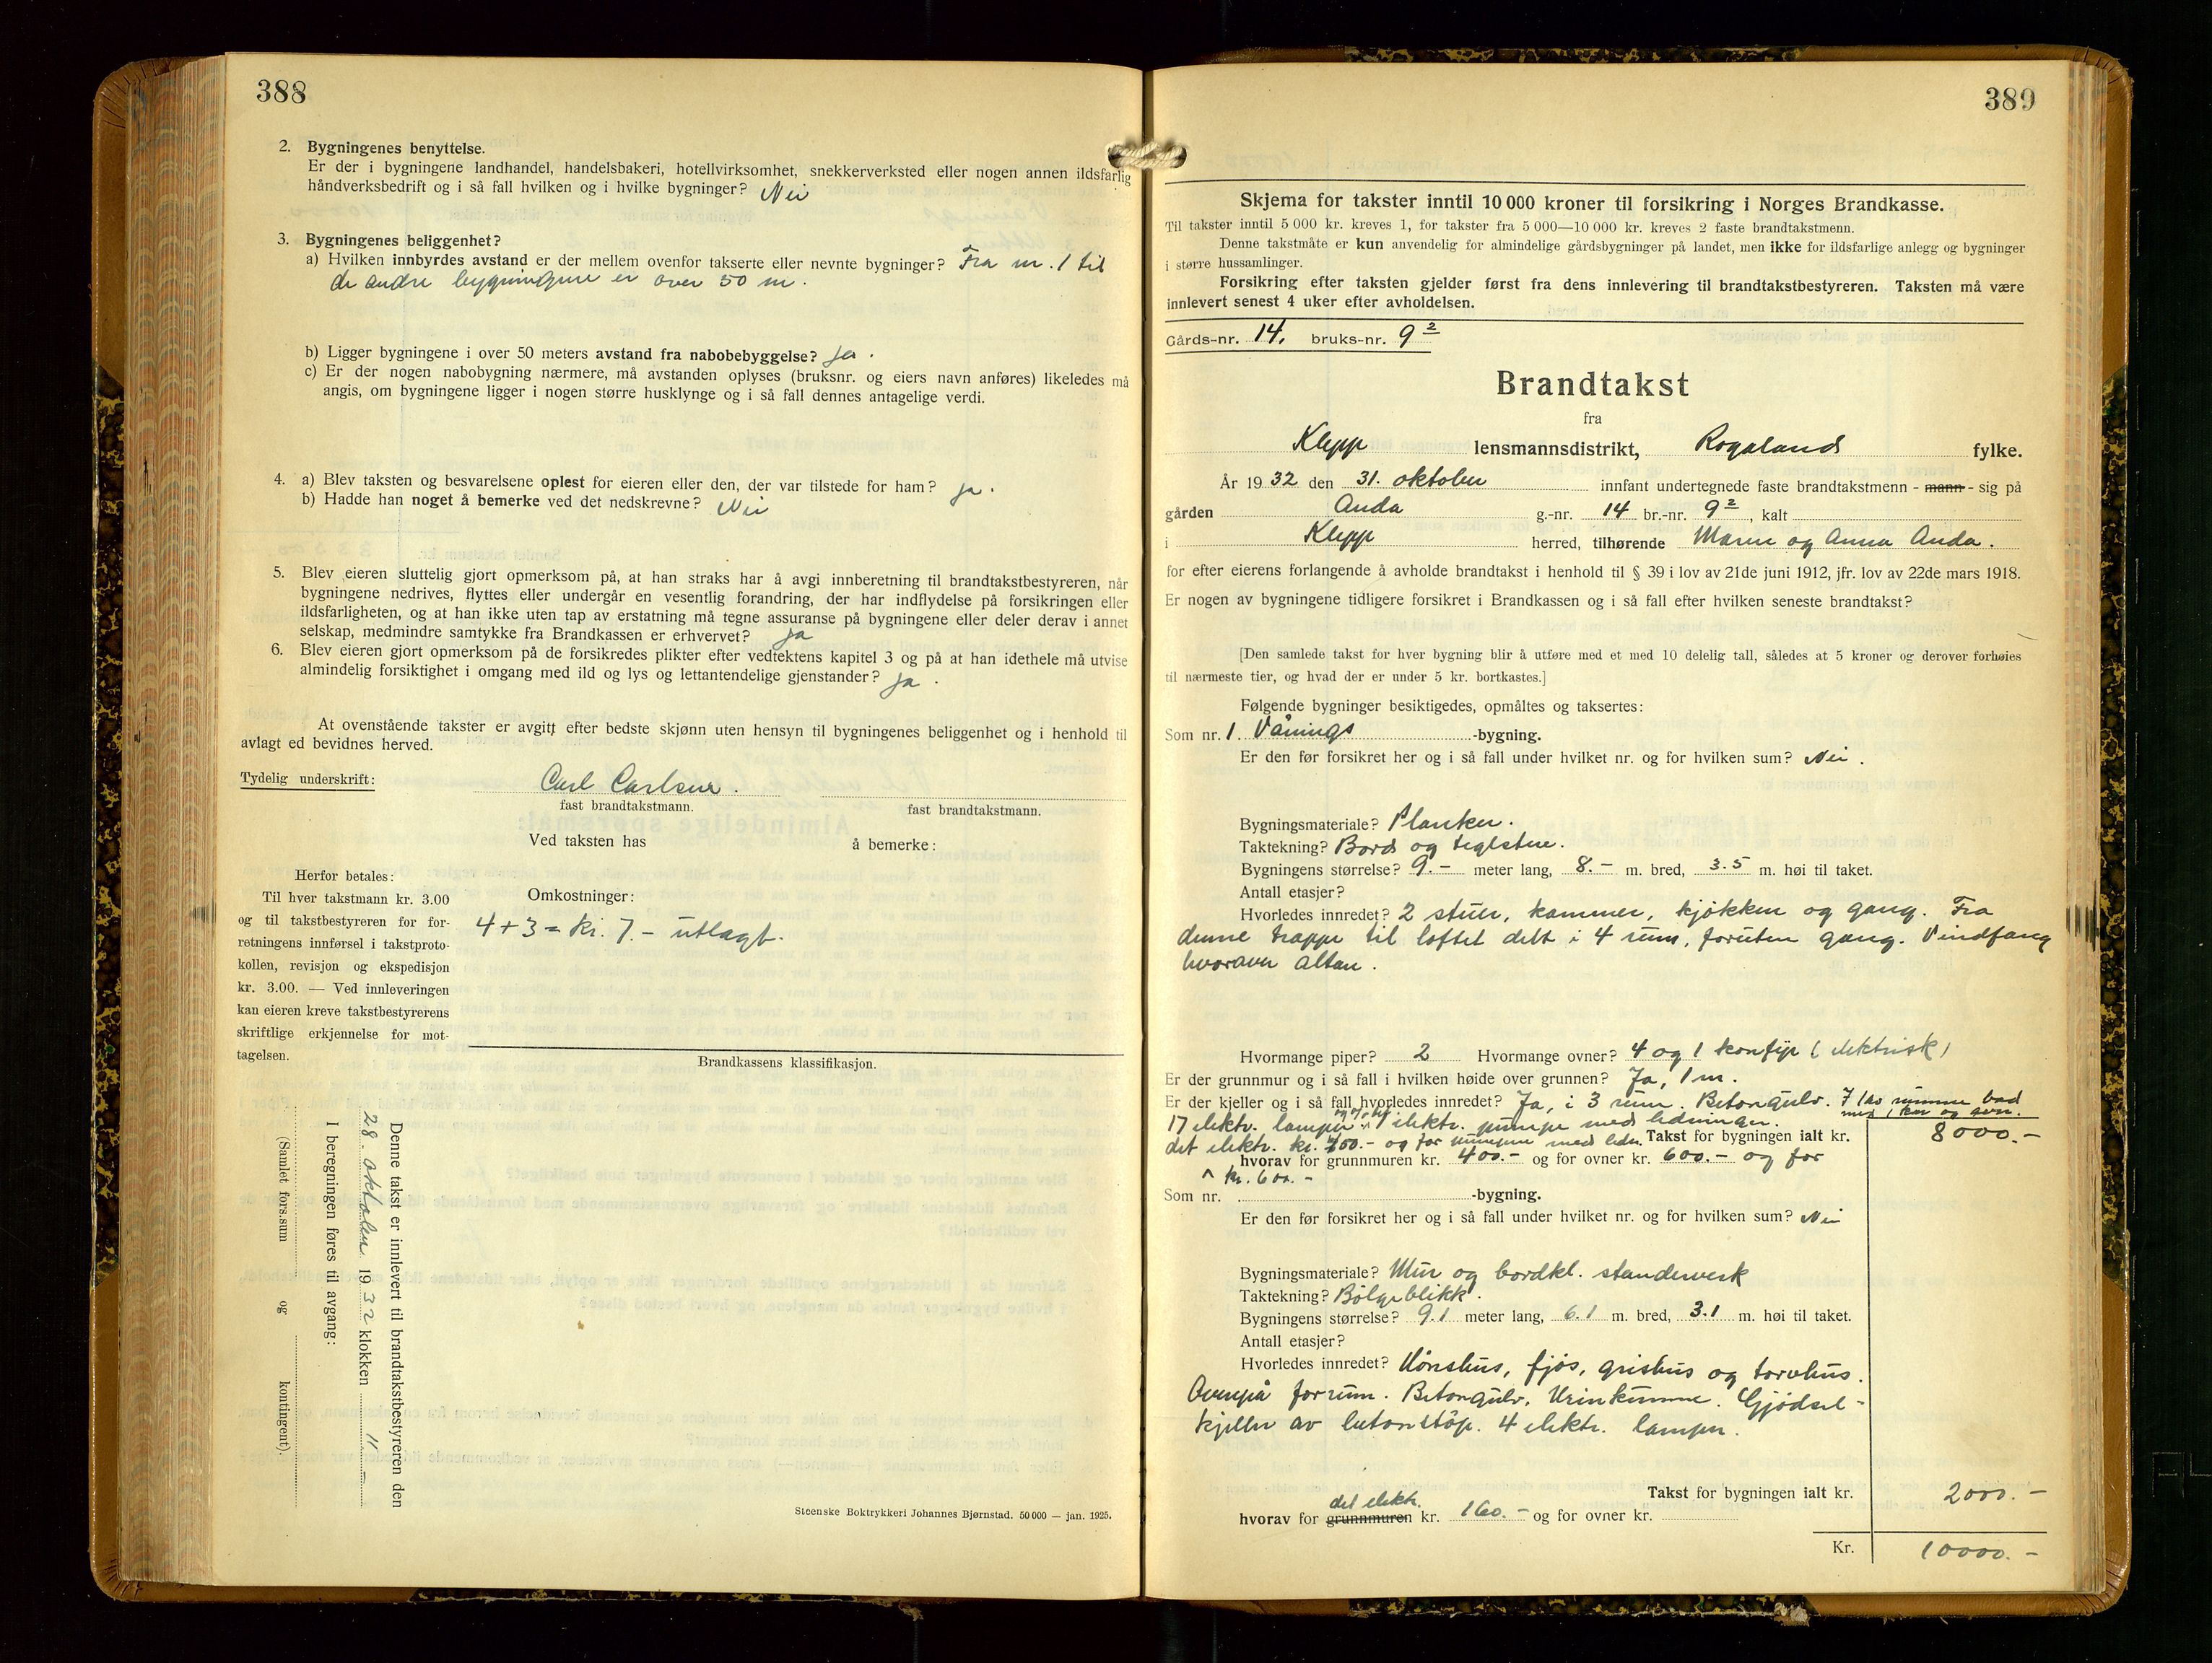 388
2. Bygningenes benyttelse.
Er der i bygningene landhandel, handelsbakeri, hotellvirksomhet, snekkerverksted eller nogen annen ildsfarlig
håndverksbedrift og i så fall hvilken og i hvilke bygninger? Nei
3. Bygningenes beliggenhet?
a) Hvilken innbyrdes avstand er der mellem ovenfor takserte eller nevnte bygninger? Fra nr. 1 til
de andre bygningene er over 50 m.
b) Ligger bygningene i over 50 meters avstand fra nabobebyggelse? Ja.
c) Er der nogen nabobygning nærmere, må avstanden oplyses (bruksnr. og eiers navn anføres) likeledes må
angis, om bygningene ligger i nogen større husklynge og i så fall dennes antagelige verdi.
4. a) Blev taksten og besvarelsene oplest for eieren eller den, der var tilstede for ham? Ja.
b) Hadde han noget å bemerke ved det nedskrevne? Nei
5. Blev eieren sluttelig gjort opmerksom på, at han straks har å avgi innberetning til brandtakstbestyreren, når
bygningene nedrives, flyttes eller undergår en vesentlig forandring, der har indflydelse på forsikringen eller
ildsfarligheten, og at han ikke uten tap av erstatning må tegne assuranse på bygningene eller deler derav i annet
selskap, medmindre samtykke fra Brandkassen er erhvervet? Ja
6. Blev eieren gjort opmerksom på de forsikredes plikter efter vedtektens kapitel 3 og på at han idethele må utvise
almindelig forsiktighet i omgang med ild og lys og lettantendelige gjenstander? Ja.
At ovenstående takster er avgitt efter bedste skjønn uten hensyn til bygningenes beliggenhet og i henhold til
avlagt ed bevidnes herved.
Tydelig underskrift: Carl Carlsen.
fast brandtakstmann. fast brandtakstmann.
Ved taksten has å bemerke:
Herfor betales:
Til hver takstmann kr. 3.00
og til takstbestyreren for for-
retningens innførsel i takstproto-
kollen, revisjon og ekspedisjon
kr. 3.00. — Ved innleveringen
kan eieren kreve takstbestyrerens
skriftlige erkjennelse for mot-
tagelsen.
Omkostninger:
4 + 3 = kr. 7.- utlagt.
Brandkassens klassifikasjon.
Denne takst er innlevert til brandtakstbestyreren den
28 oktober 1932 klokken 11 -
I beregningen føres til avgang:
(Samlet fors.sum og kontingent)
Steenske Boktrykkeri Johannes Bjørnstad. 50 000 — jan. 1925.
389
Skjema for takster inntil 10 000 kroner til forsikring i Norges Brandkasse.
Til takster inntil 5 000 kr. kreves 1, for takster fra 5 000—10 000 kr. kreves 2 faste brandtakstmenn.
Denne takstmåte er kun anvendelig for almindelige gårdsbygninger på landet, men ikke for ildsfarlige anlegg og bygninger
i større hussamlinger.
Forsikring efter taksten gjelder først fra dens innlevering til brandtakstbestyreren. Taksten må være
innlevert senest 4 uker efter avholdelsen.
Gårds-nr. 14, bruks-nr. 9 2
Brandtakst
fra
Klepp lensmannsdistrikt, Rogalands fylke.
År 1932 den 31. oktober innfant undertegnede faste brandtakstmenn - mann - sig på
gården Anda g.-nr. 14 br.-nr. 9 2, kalt
i Klepp herred, tilhørende Maren og Anna Anda.
for efter eierens forlangende å avholde brandtakst i henhold til § 39 i lov av 21de juni 1912, jfr. lov av 22de mars 1918.
Er nogen av bygningene tidligere forsikret i Brandkassen og i så fall efter hvilken seneste brandtakst?
[Den samlede takst for hver bygning blir å utføre med et med 10 delelig tall, således at 5 kroner og derover forhøies
til nærmeste tier, og hvad der er under 5 kr. bortkastes.]
Følgende bygninger besiktigedes, opmåltes og taksertes:
Som nr. 1. Vånings -bygning.
Er den før forsikret her og i så fall under hvilket nr. og for hvilken sum? Nei.
Bygningsmateriale? Planker.
Taktekning? Bord og teglstene.
Bygningens størrelse? 9.- meter lang, 8.- m. bred, 3.5 m. høi til taket.
Antall etasjer?
Hvorledes innredet? 2 stuer, kammer, kjøkken og gang. Fra
denne trappe til loftet delt i 4 rum, foruten gang. Vindfang
hvorover altan.
Hvormange piper? 2 Hvormange ovner? 4 og 1 komfyr (elektrisk)
Er der grunnmur og i så fall i hvilken høide over grunnen? Ja, 1 m.
Er der kjeller og i så fall hvorledes innredet? Ja, i 3 rum. Betongulv. I
17 elektr. lamper 1 elektr. pumpe med ledninger.
det elektr. kr. 400.- og for pumpen med ledn. Takst for bygningen ialt kr. 8000.-
hvorav for grunnmuren kr. 400.- og for ovner kr. 600.- og for
kr. 600.-
Som nr. -bygning.
Er den før forsikret her og i så fall under hvilket nr. og for hvilken sum? Nei
Bygningsmateriale? Mur og bordkl. standerverk
Taktekning? Bølgeblikk.
Bygningens størrelse? 9.1 meter lang, 6.1 m. bred, 3.1 m. høi til taket.
Antall etasjer?
Hvorledes innredet? Hønshus, fjøs, grishus og torvhus.
Ovenpå forrum. Betongulv, Urinkumme. Gjødsel-
kjeller av betonstøp. 4 elektr. lamper.
Takst for bygningen ialt kr. 2000.-
det elektr.
hvorav for grunnmuren kr. 160.- og for ovner kr.
Kr. 10000.-